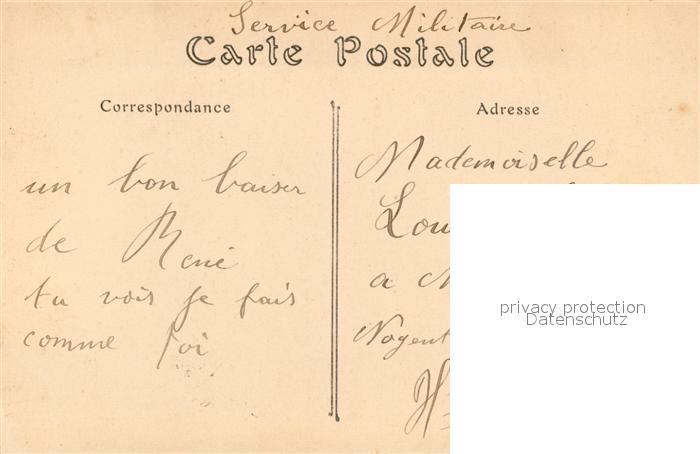 Service Militaire
Carte Postale
Correspondance
un bon baiser
de René
tu vois je fais
comme toi
Adresse
Mademoiselle
Lou
a
Nogent
privacy protection
Datenschutz